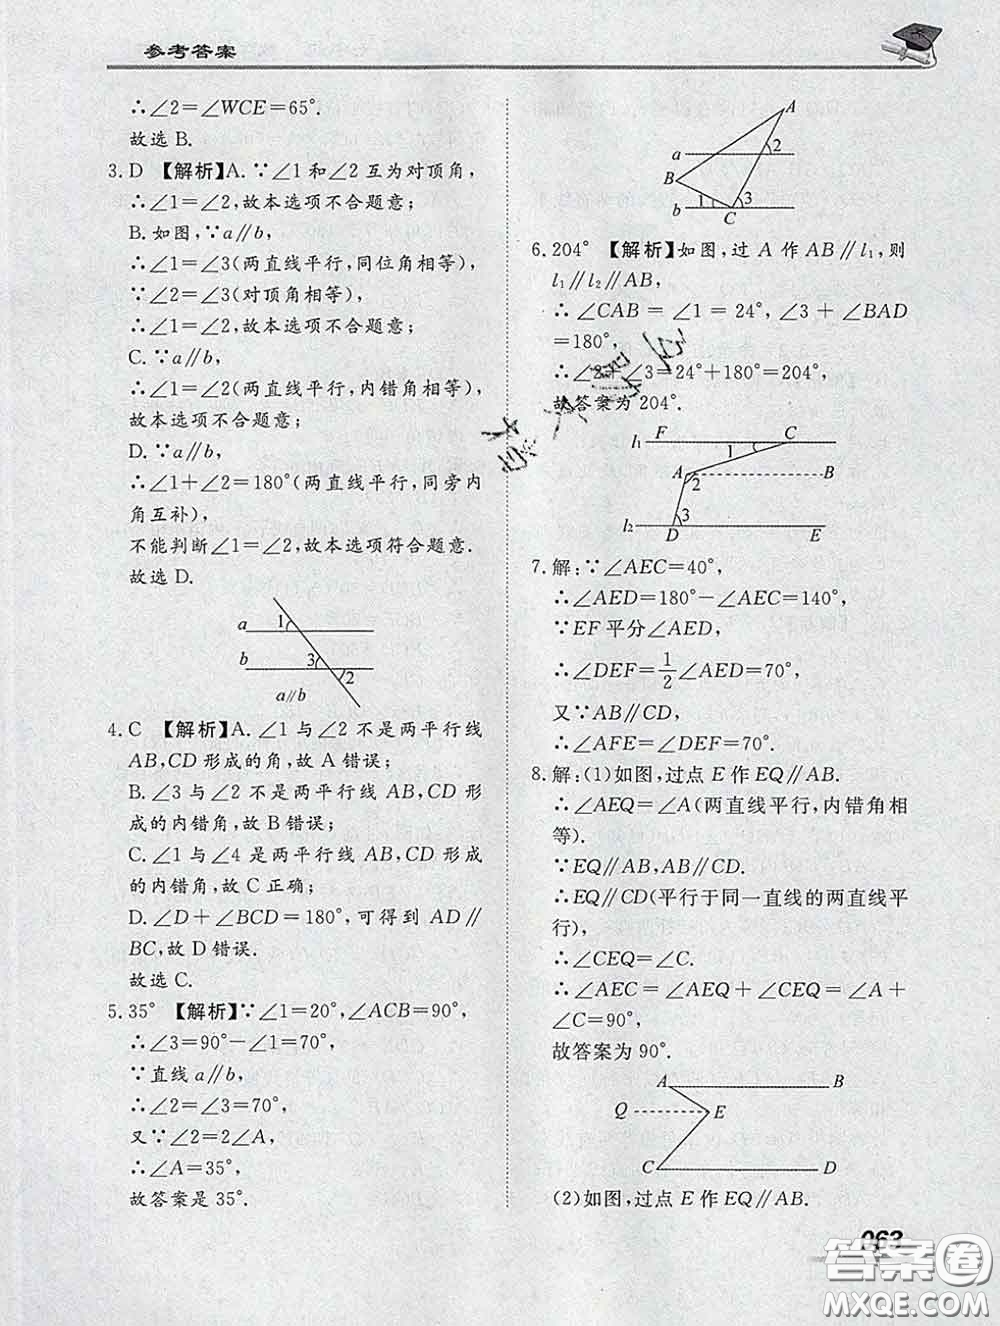 参考答案
∴∠2=∠WCE=65°.
故选 B.
3. D 【解析】A. ∵∠1 和∠2 互为对顶角，
∴∠1=∠2,故本选项不合题意；
B. 如图,∵a∥b,
∴∠1=∠3(两直线平行,同位角相等),
∵∠2=∠3(对顶角相等),
∴∠1=∠2,故本选项不合题意；
C. ∵a∥b,
∴∠1=∠2(两直线平行,内错角相等),
故本选项不合题意；
D. ∵a∥b,
∴∠1+∠2=180°(两直线平行,同旁内
角互补),
不能判断∠1=∠2,故本选项符合题意.
故选 D.
a 1
b 3 2
a∥b
4. C 【解析】A. ∠1 与∠2 不是两平行线
AB,CD 形成的角,故 A 错误；
B. ∠3 与∠2 不是两平行线 AB,CD 形
成的内错角,故 B 错误；
C. ∠1 与∠4 是两平行线 AB,CD 形成
的内错角,故 C 正确；
D. ∠D+∠BCD=180°,可得到 AD∥
BC,故 D 错误.
故选 C.
5. 35° 【解析】∵∠1=20°,∠ACB=90°,
∴∠3=90°-∠1=70°,
∵直线 a∥b,
∴∠2=∠3=70°,
又∵∠2=2∠A,
∴∠A=35°,
故答案是 35°.
A
a 2
B
1 3
b C
6. 204° 【解析】如图,过 A 作 AB∥l₁,则
l₁∥l₂∥AB,
∴∠CAB=∠1=24°,∠3+∠BAD
=180°,
∴∠2+∠3=24°+180°=204°,
故答案为 204°.
l₁ F C
1
A 2 B
3
l₂ D E
7. 解:∵∠AEC=40°,
∴∠AED=180°-∠AEC=140°,
∵EF 平分∠AED,
∴∠DEF=1/2∠AED=70°,
又∵AB∥CD,
∴∠AFE=∠DEF=70°.
8. 解:(1)如图,过点 E 作 EQ∥AB.
∴∠AEQ=∠A(两直线平行,内错角相
等).
∵EQ∥AB,AB∥CD.
∴EQ∥CD(平行于同一直线的两直线平
行),
∴∠CEQ=∠C.
∴∠AEC=∠AEQ+∠CEQ=∠A+
∠C=90°,
故答案为 90°.
A B
Q E
C D
(2)如图,过点 E 作 EQ∥AB.
063
答案圈
MXQE.COM